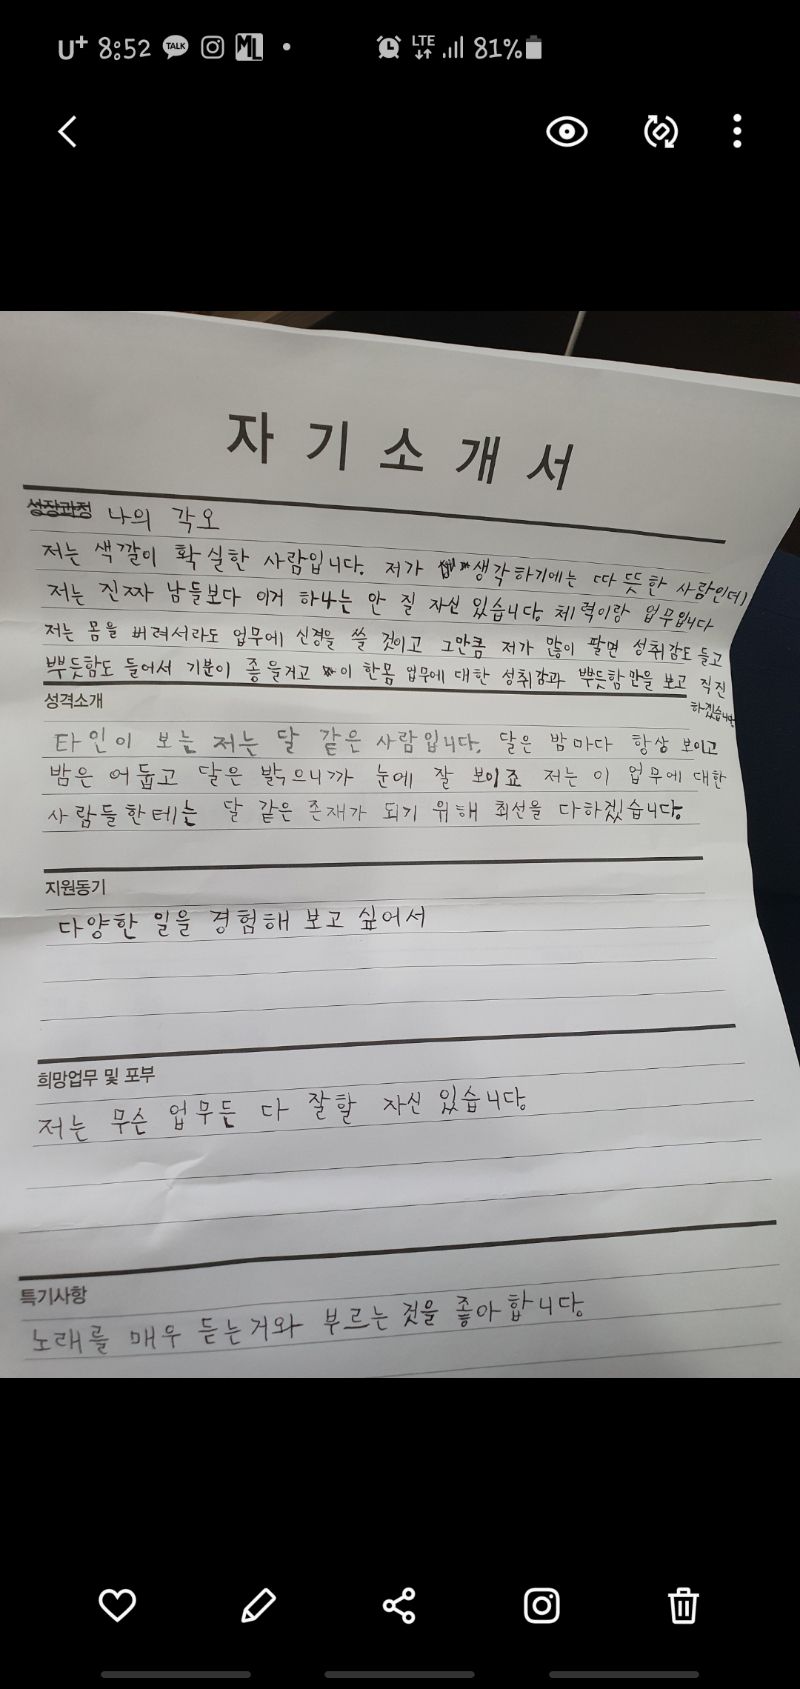 U+ 8:52 TALK ML LTE 81%
자기소개서
성장과정 나의 각오
저는 색깔이 확실한 사람입니다. 저가 생각하기에는 따뜻한 사람인데
저는 진짜 남들보다 이거 하나는 안 질 자신 있습니다. 체력이랑 업무입니다
저는 몸을 버려서라도 업무에 신경을 쓸 것이고 그만큼 저가 많이 팔면 성취감도 들고
뿌듯함도 들어서 기분이 좋을거고 이 한몸 업무에 대한 성취감과 뿌듯함만을 보고 직진
하겠습니다
성격소개
타인이 보는 저는 달 같은 사람입니다. 달은 밤마다 항상 보이고
밤은 어둡고 달은 밝으니까 눈에 잘 보이죠 저는 이 업무에 대한
사람들한테는 달 같은 존재가 되기 위해 최선을 다하겠습니다.
지원동기
다양한 일을 경험해 보고 싶어서
희망업무 및 포부
저는 무슨 업무든 다 잘할 자신 있습니다.
특기사항
노래를 매우 듣는거와 부르는 것을 좋아합니다.